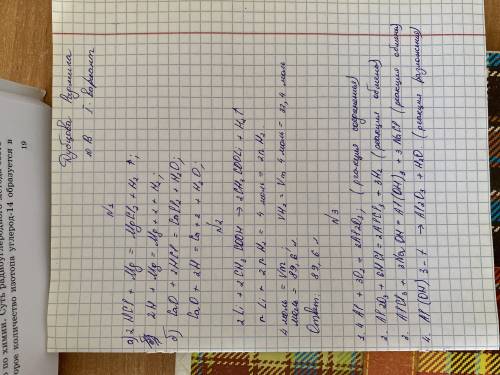 Дубцова Людмила
10 В 1. Вариант
N1
а) 2HCl + Mg = MgCl2 + H2 ↑;
2H + Mg = Mg + 2 + H2;
б) CaO + 2HCl = CaCl2 + H2O;
CaO + 2H = Ca + 2 + H2O;
N2
2Li + 2CH3COOH → 2CH3COOLi + H2↑
n Li + 2n H2 = 4 моль = 2n H2
4 моль = Vm VH2 = Vm 4 моль = 22,4 моль
моль = 89,6 л;
Ответ: 89,6 л
N3
1. 4Al + 3O2 = 2Al2O3 (реакция соединения)
2. Al2O3 + 6HCl = 2AlCl3 + 3H2 (реакция обмена)
3. AlCl3 + 3NaOH = Al(OH)3 + 3NaCl (реакция обмена)
4. Al(OH)3 - t → Al2O3 + H2O (реакция разложения)
по химии. Суть радиоуглеродного метода
торое количество изотопа углерод-14 образуется в
19